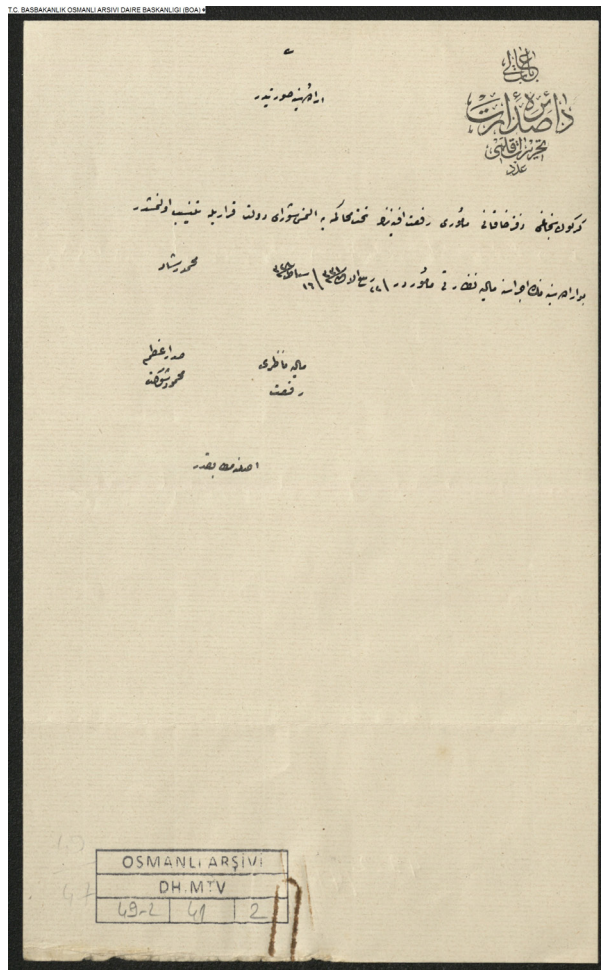 T.C. BASBAKANLIK OSMANLI ARSIVI DAIRE BASKANLIGI (BOA)
باب عالی
دائرهٔ صدارت
تحریرات قلمی
عدد
ارادهٔ سنیه صورتیدر
سنجاغی دفتر خاقانی مأموری رفعت افندینك تحت محاكمه یه النمسی شورای دولت قراریله تنسیب اولنمشدر
بو ارادهٔ سنیه نك اجراسنه مالیه نظارتی مأموردر
محمد رشاد
صدر اعظم
محمود شوكت
مالیه ناظری
رفعت
اصلنه مطابقدر
OSMANLI ARŞİVİ
DH.MTV
49-2 41 2